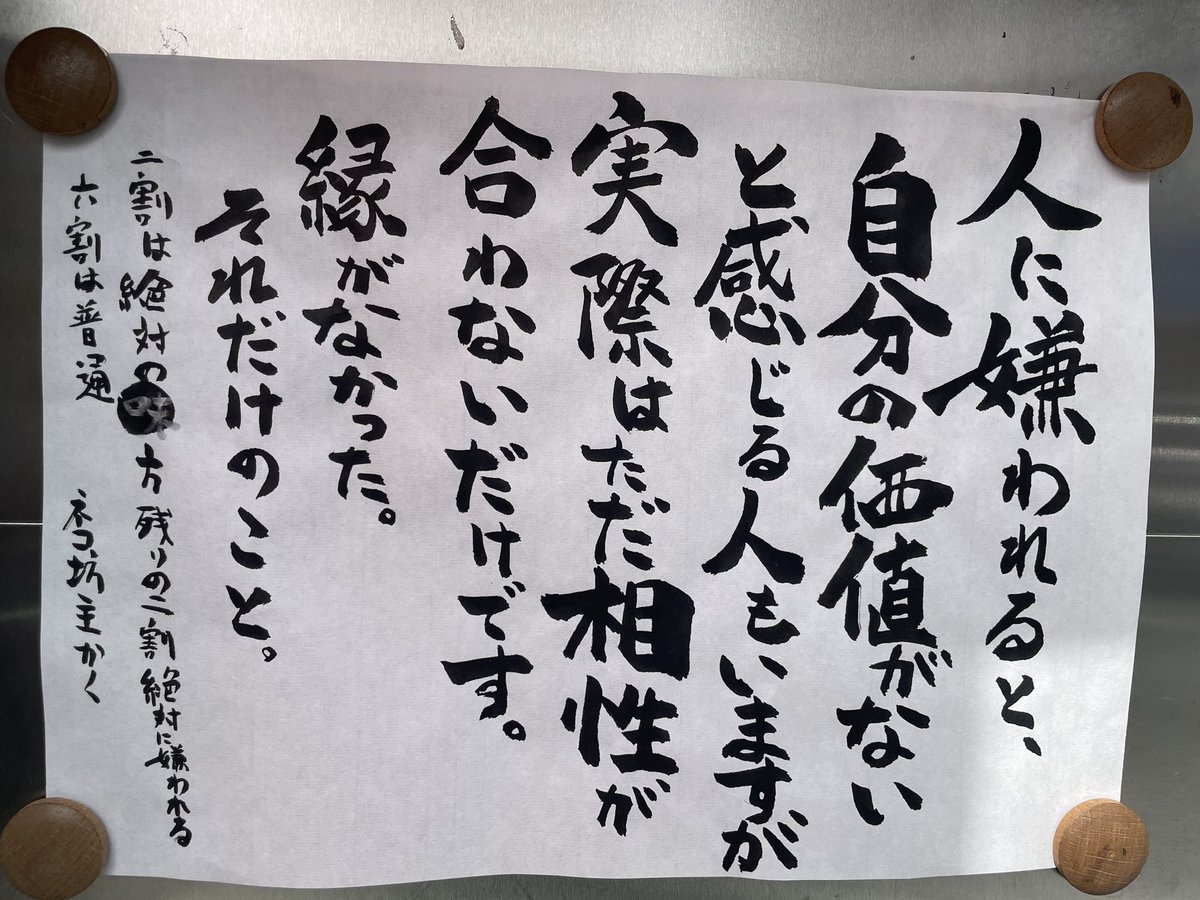 人に嫌われると、
自分の価値がない
と感じる人もいますが
実際はただ相性が
合わないだけです。
縁がなかった。
それだけのこと。
二割は絶対の味方 残りの二割 絶対に嫌われる
六割は普通 ネコ坊主かく